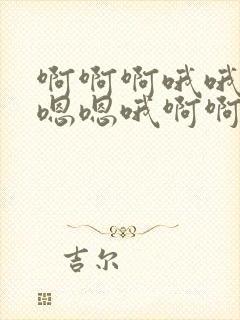 啊啊啊哦哦
嗯嗯哦啊啊
吉尔